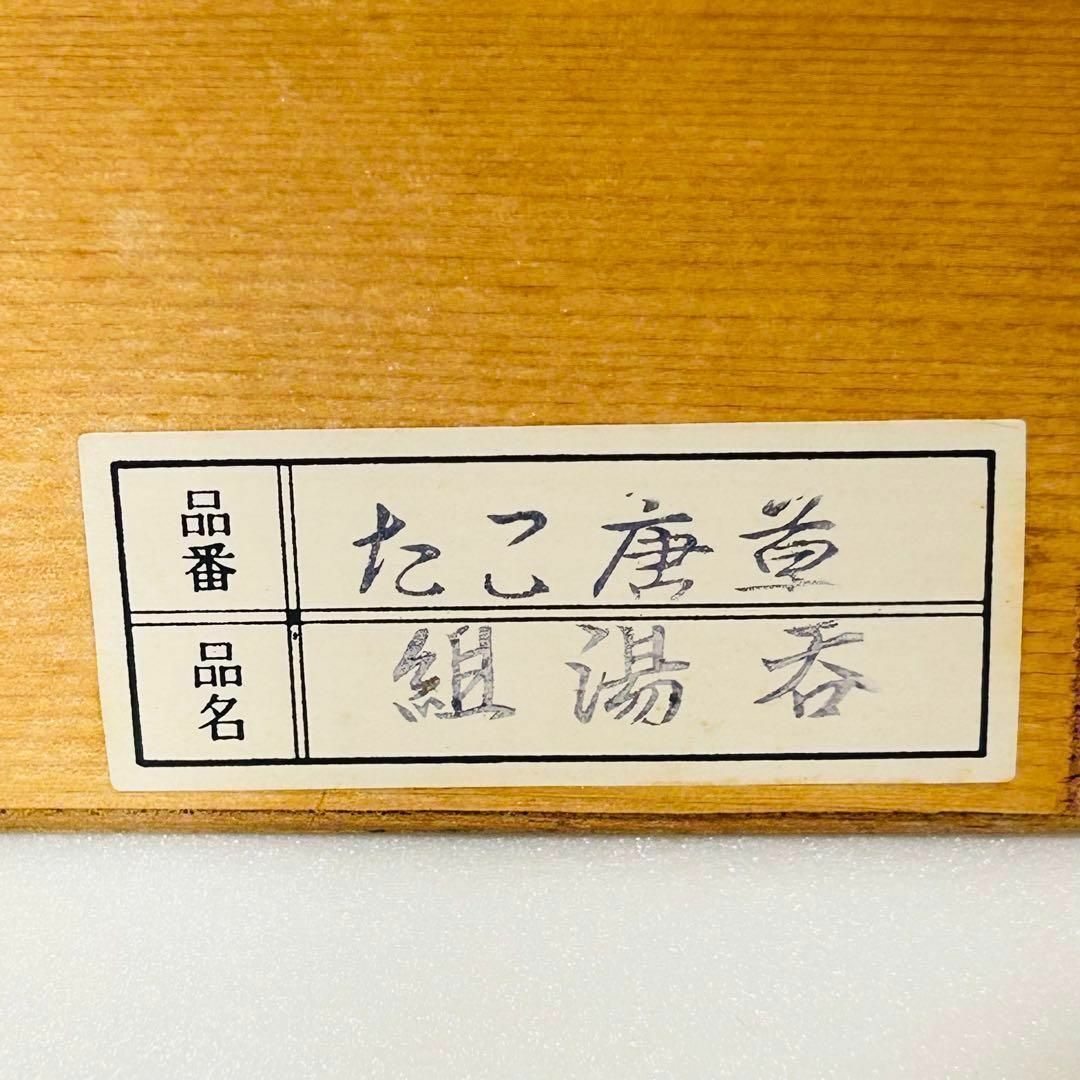 品番 たこ唐草
品名 組湯呑